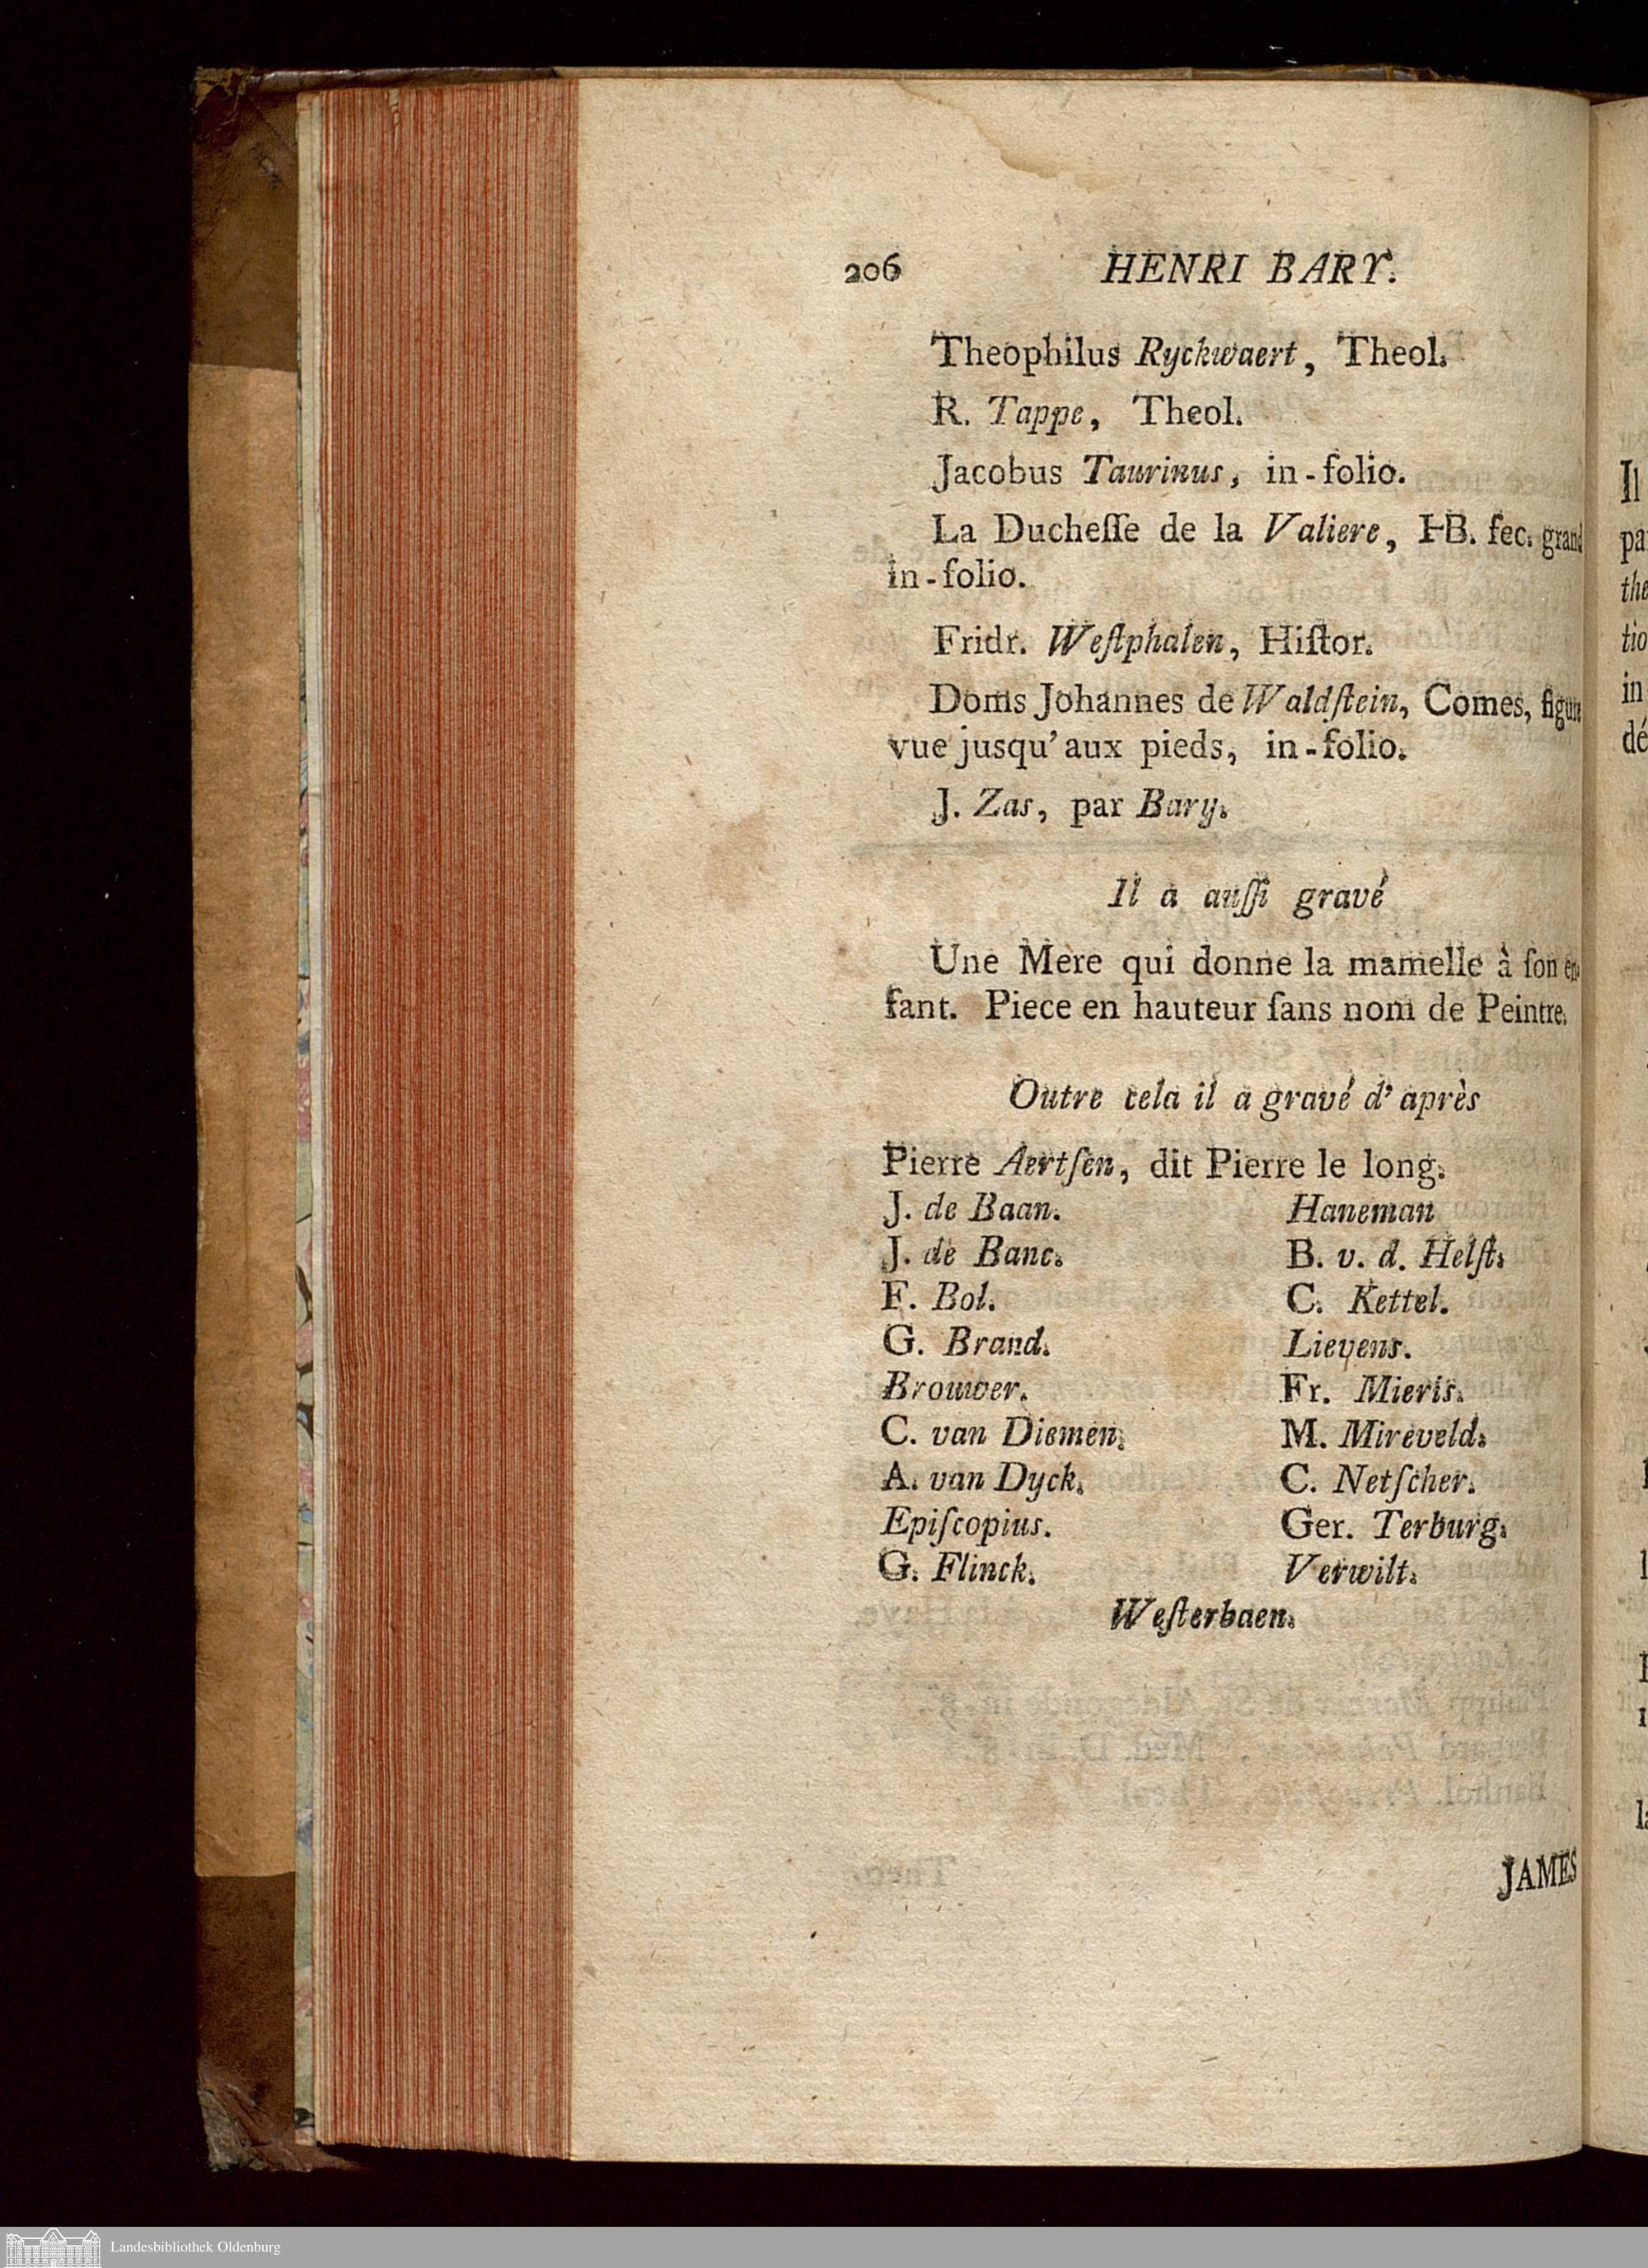 206 HENRI BARY.
Theophilus Ryckwaert, Theol.
R. Tappe, Theol.
Jacobus Taurinus, in-folio.
La Ducheſſe de la Valiere, HB. fec. grand
in-folio.
Fridr. Weſtphalen, Hiſtor.
Doms Johannes de Waldſtein, Comes, figure
vue jusqu'aux pieds, in-folio.
J. Zas, par Bary.
Il a auſſi gravé
Une Mere qui donne la mamelle à ſon en-
fant. Piece en hauteur ſans nom de Peintre.
Outre cela il a gravé d'après
Pierre Aertſen, dit Pierre le long.
J. de Baan.
J. de Banc.
F. Bol.
G. Brand.
Brouwer.
C. van Diemen.
A. van Dyck.
Epiſcopius.
G. Flinck.
Haneman
B. v. d. Helſt.
C. Kettel.
Lievens.
Fr. Mieris.
M. Mireveld.
C. Netſcher.
Ger. Terburg.
Verwilt.
Weſterbaen.
JAMES
Il
pa
the
tio
in
dé
Landesbibliothek Oldenburg